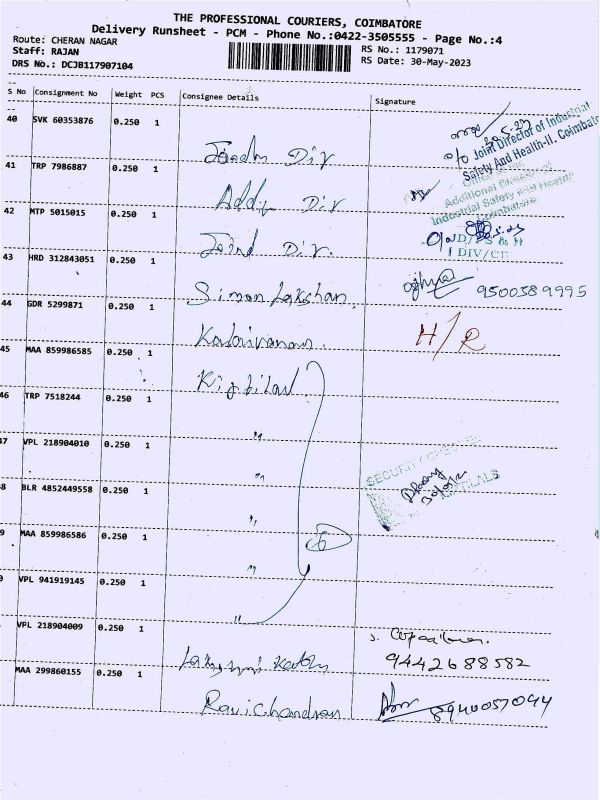 THE PROFESSIONAL COURIERS, COIMBATORE
Delivery Runsheet - PCM - Phone No.:0422-3505555 - Page No.:4
Route: CHERAN NAGAR
Staff: RAJAN
DRS No.: DCJB117907104
RS No.: 1179071
RS Date: 30-May-2023
S No Consignment No Weight PCS Consignee Details Signature
40 SVK 60353876 0.250 1
o/o Joint Director of Industrial
Safety And Health-II, Coimbatore
41 TRP 7986887 0.250 1 Addl Dir
Additional Director of
Industrial Safety and Health
Coimbatore
42 MTP 5015015 0.250 1 Joint Dir.
JD/IS & H
I DIV/CBE
43 HRD 312843051 0.250 1 Simon Lakshan 9500589995
44 GDR 5299871 0.250 1 H/R
45 MAA 859986585 0.250 1
46 TRP 7518244 0.250 1 "
47 VPL 218904010 0.250 1 "
8 BLR 4852449558 0.250 1 "
SECURITY
9 MAA 859986586 0.250 1 " 6
0 VPL 941919145 0.250 1 "
VPL 218904009 0.250 1 9442688582
MAA 299860155 0.250 1 Ravichandran 8940057044